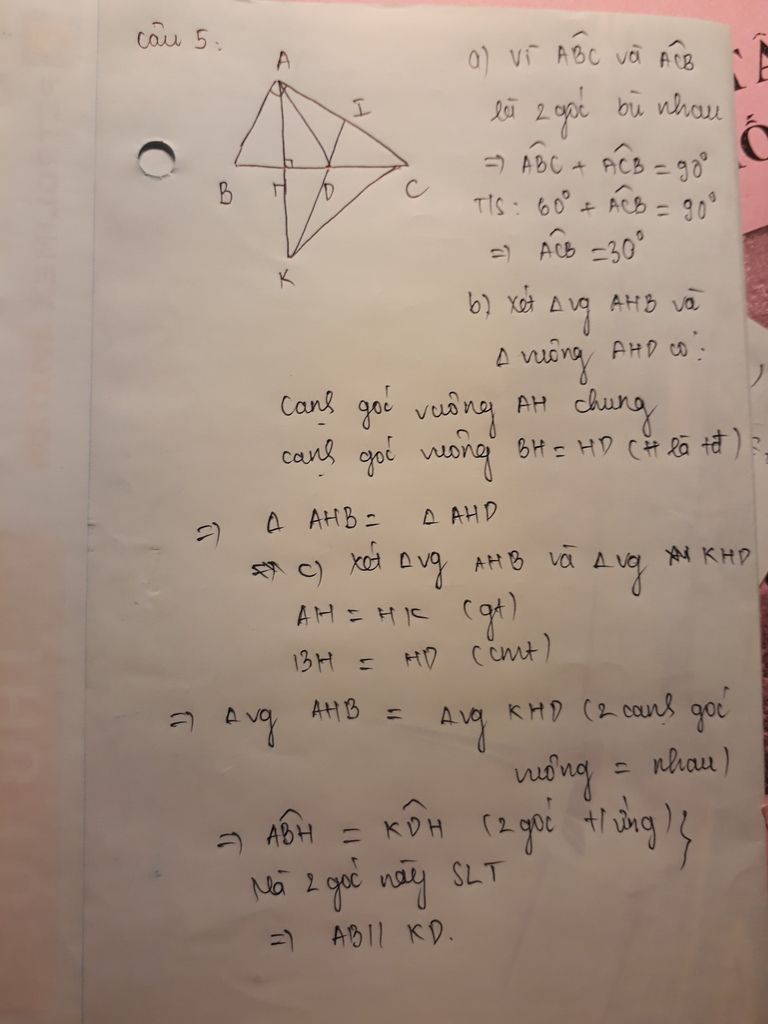 Câu 5:
A
I
B
H
D
C
K
a) Vì ABC và ACB
là 2 góc bù nhau
=> ABC + ACB = 90°
T/S: 60° + ACB = 90°
=> ACB = 30°
b) Xét Δvg AHB và
Δ vuông AHD có:
Cạnh góc vuông AH chung
cạnh góc vuông BH = HD (H là tđ)
=> Δ AHB = Δ AHD
c) Xét Δvg AHB và Δvg KHD
AH = HK (gt)
BH = HD (cmt)
=> Δvg AHB = Δvg KHD (2 cạnh góc
vuông = nhau)
=> ABH = KDH (2 góc t/ứng) }
Mà 2 góc này SLT
=> AB // KD.